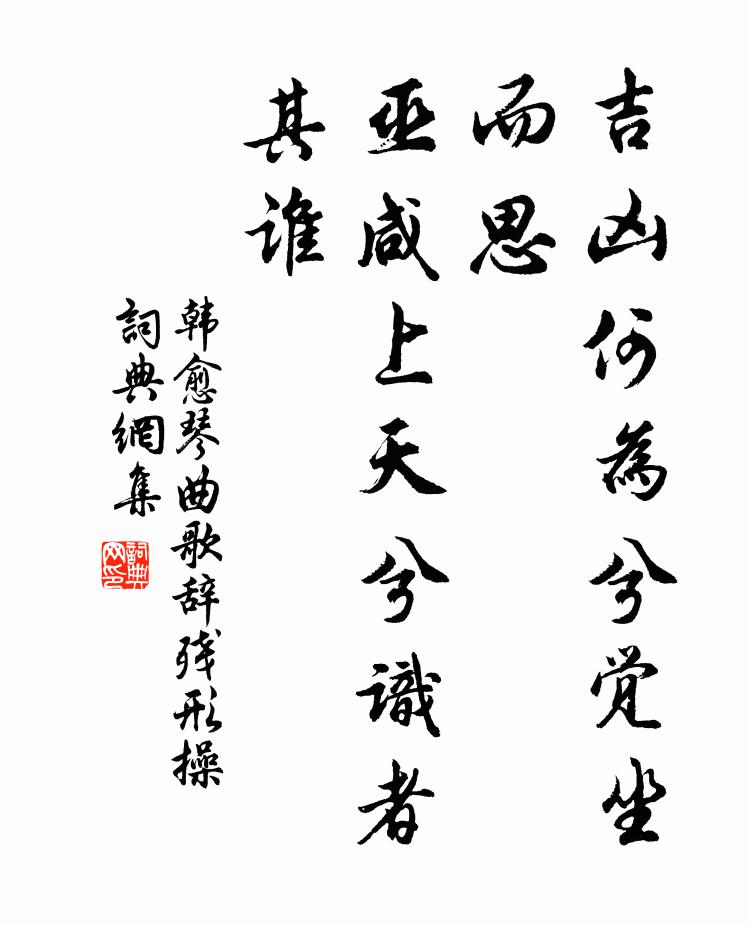 吉凶何為兮觉坐
而思
巫咸上天兮識者
其誰
韩愈琴曲歌辞残形操
詞典網集
詞典
网印